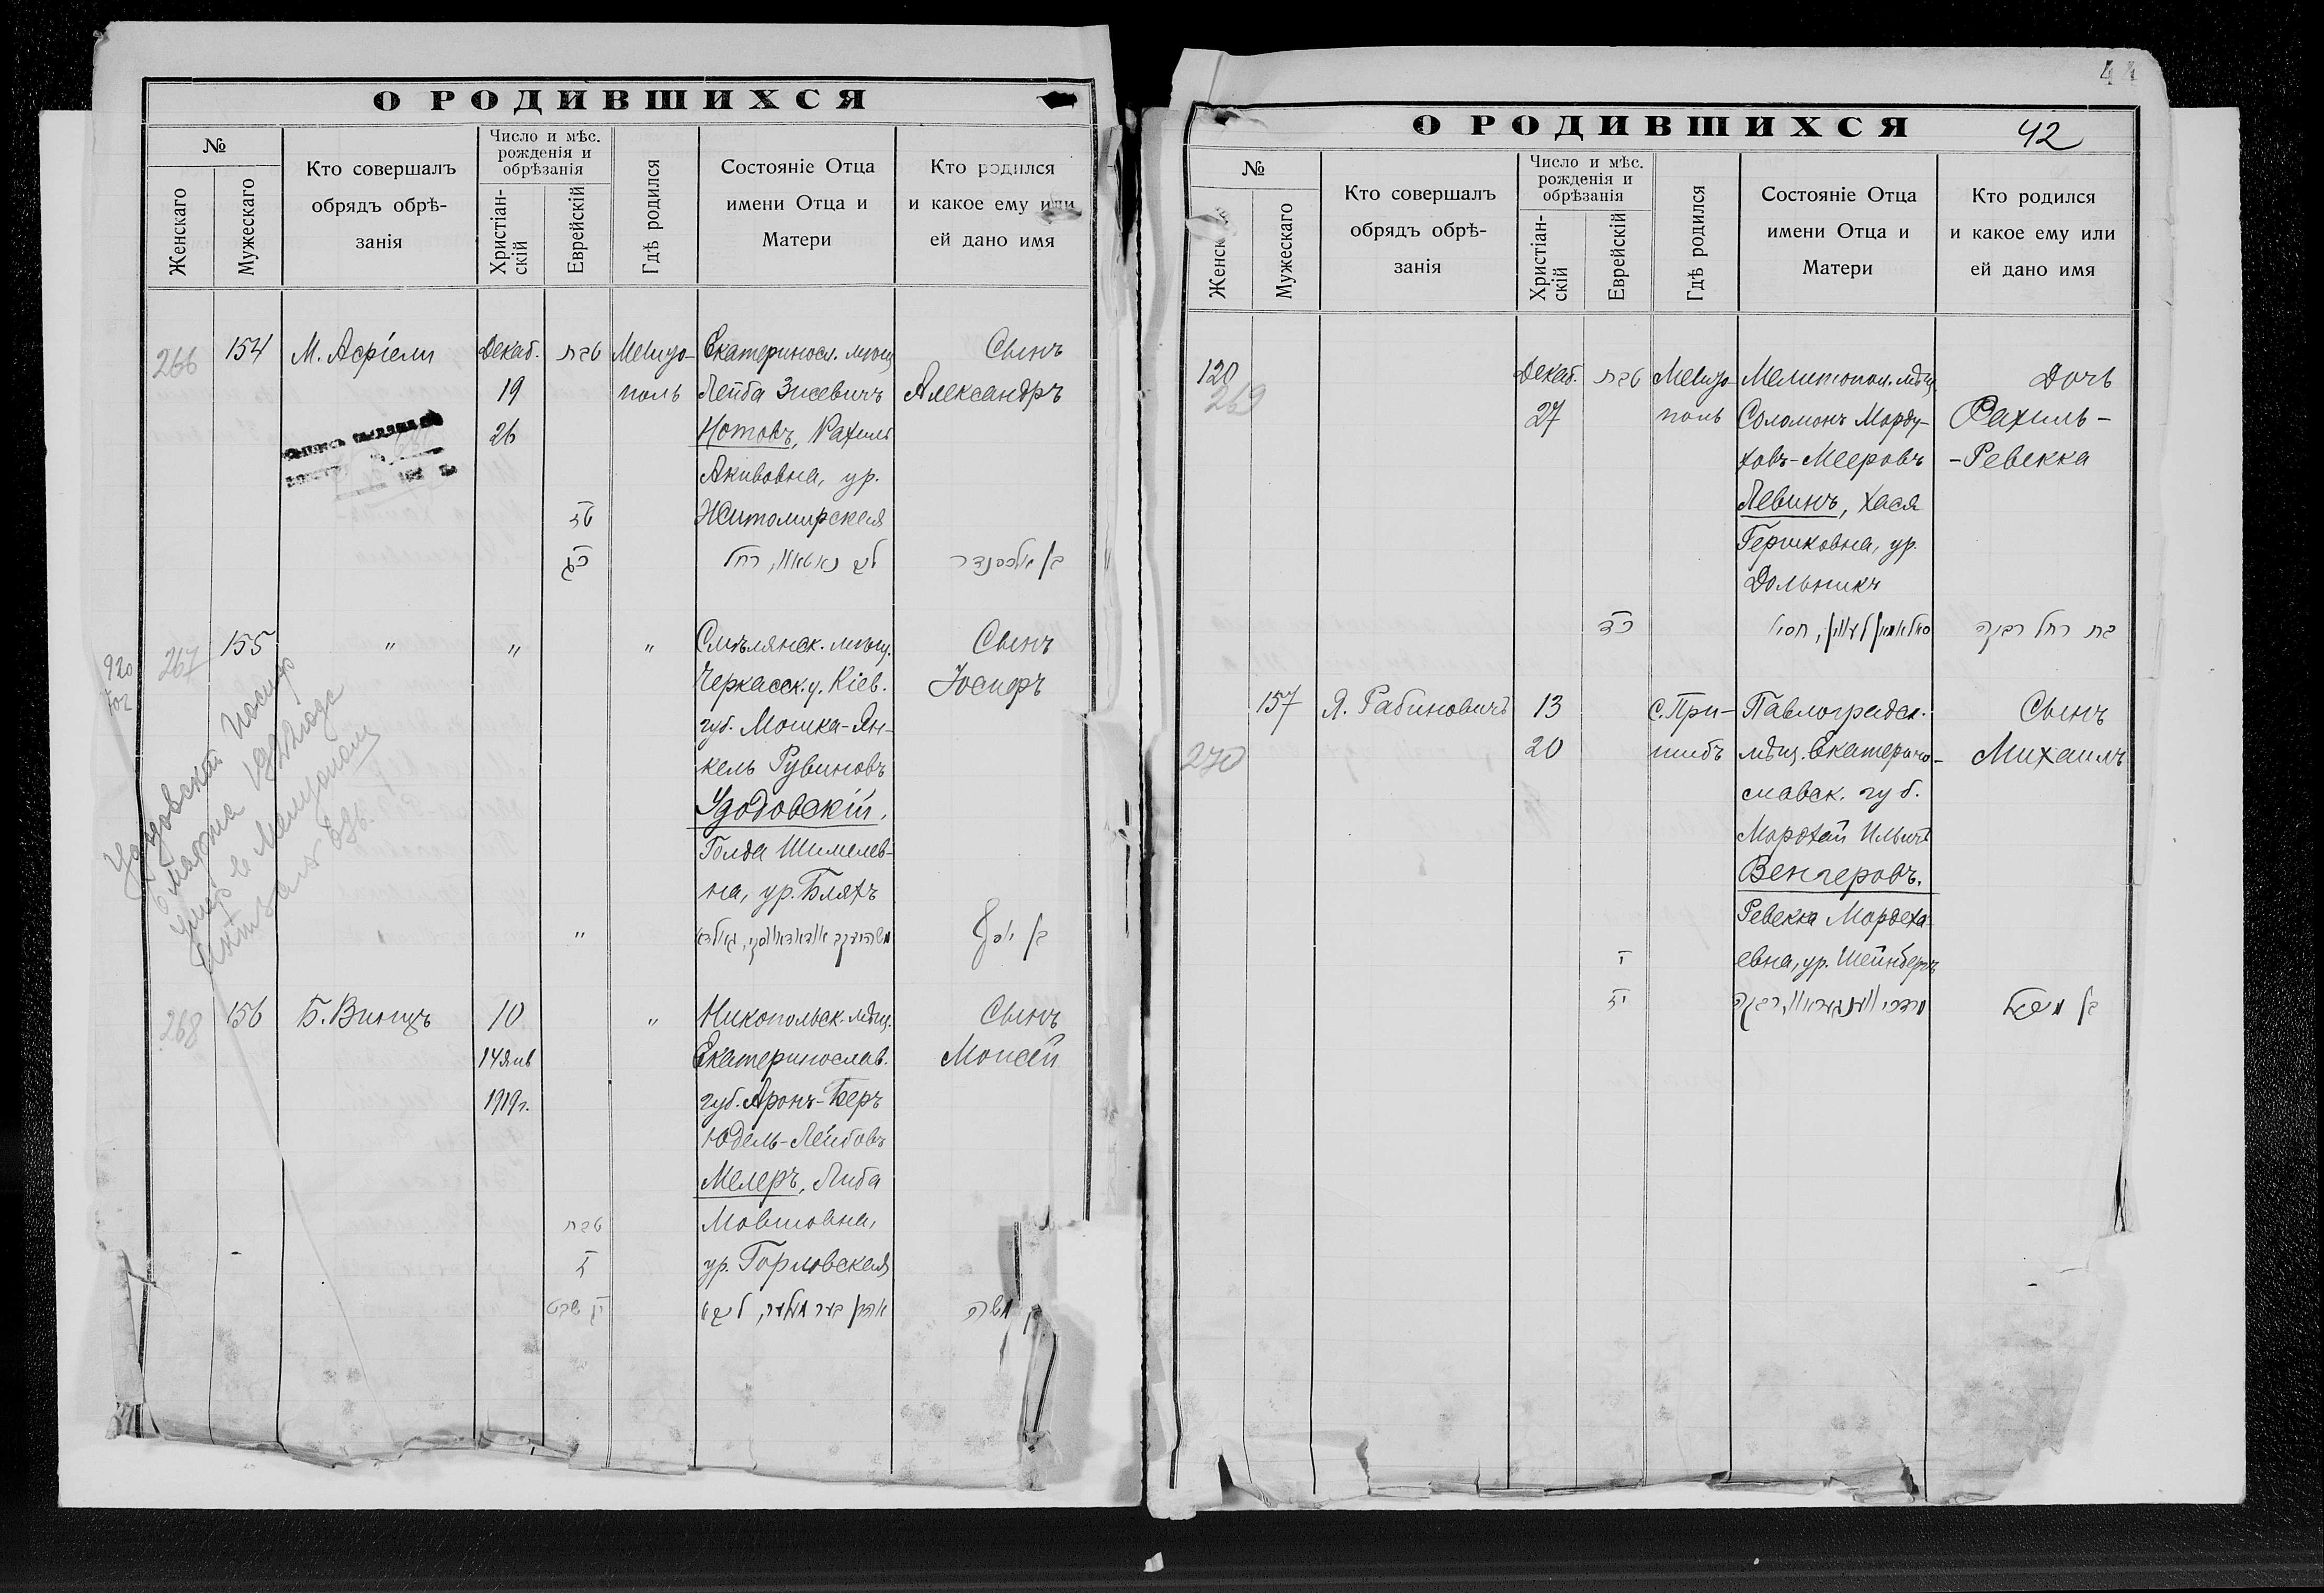 О РОДИВШИХСЯ
№
Женскаго
Мужескаго
Кто совершалъ
обрядъ обрѣ-
занія
Число и мѣс.
рожденія и
обрѣзанія
Христіан-
скій
Еврейскій
Гдѣ родился
Состояніе Отца
имени Отца и
Матери
Кто родился
и какое ему или
ей дано имя
266
154
М. Асріели
Декаб.
19
26
טבת
טז
כג
Мелито-
поль
Екатеринося. мѣщ
Лейба Зисевичъ
Нотовъ, Рахиль
Акивовна, ур.
Житомирская
Сынъ
Александръ
בן אלכסנדר
267
155
"
"
"
"
Смѣлянск. мѣщ.
Черкасск. у. Кіев.
губ. Мошка-Ян-
кель Рувиновъ
Удовскій,
Голда Шимелев-
на, ур. Бляхъ
Сынъ
Іосифъ
בן יוסף
920
268
156
Б. Винцъ
10
14 Янв
1919г.
טבת
"
Никопольск. мѣщ.
Екатеринослав.
губ. Аронъ-Беръ
Юдель-Лейбовъ
Мелеръ, Либа
Мовшовна,
ур. Горловская
Сынъ
Моисей
משה
44
О РОДИВШИХСЯ
42
№
Мужескаго
Кто совершалъ
обрядъ обрѣ-
занія
Число и мѣс.
рожденія и
обрѣзанія
Христіан-
скій
Еврейскій
Гдѣ родился
Состояніе Отца
имени Отца и
Матери
Кто родился
и какое ему или
ей дано имя
120
269
Декаб.
27
טבת
כד
Мелито-
поль
Мелитопол. мѣщ.
Соломонъ Морду-
ховъ-Мееровъ
Левинъ, Хася
Гершковна, ур.
Дольникъ
Дочь
Рахиль-
-Ревекка
בת רחל רבקה
270
157
Я. Рабиновичъ
13
20
י
יז
с. При-
шибъ
Павлоградск.
мѣщ. Екатерино-
славск. губ.
Мордхай Ильичъ
Венгеровъ,
Ревекка Мордеха-
евна, ур. Шейнбергъ
Сынъ
Михаилъ